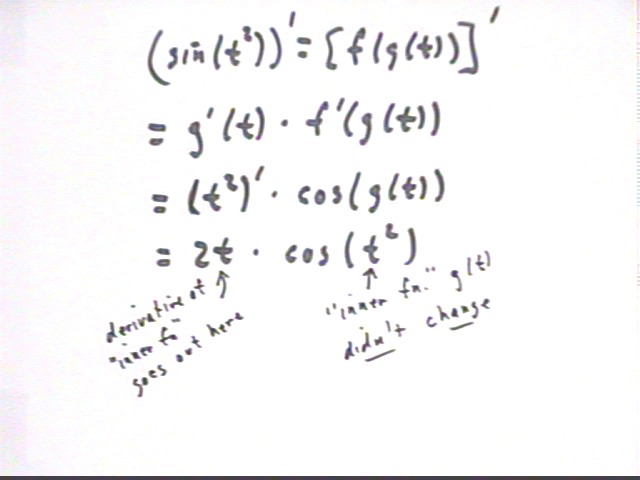 (sin(t²))' = [f(g(t))]'
= g'(t) · f'(g(t))
= (t²)' · cos(g(t))
= 2t · cos(t²)
derivative of
"inner fn"
goes out here
"inner fn." g(t)
didn't change